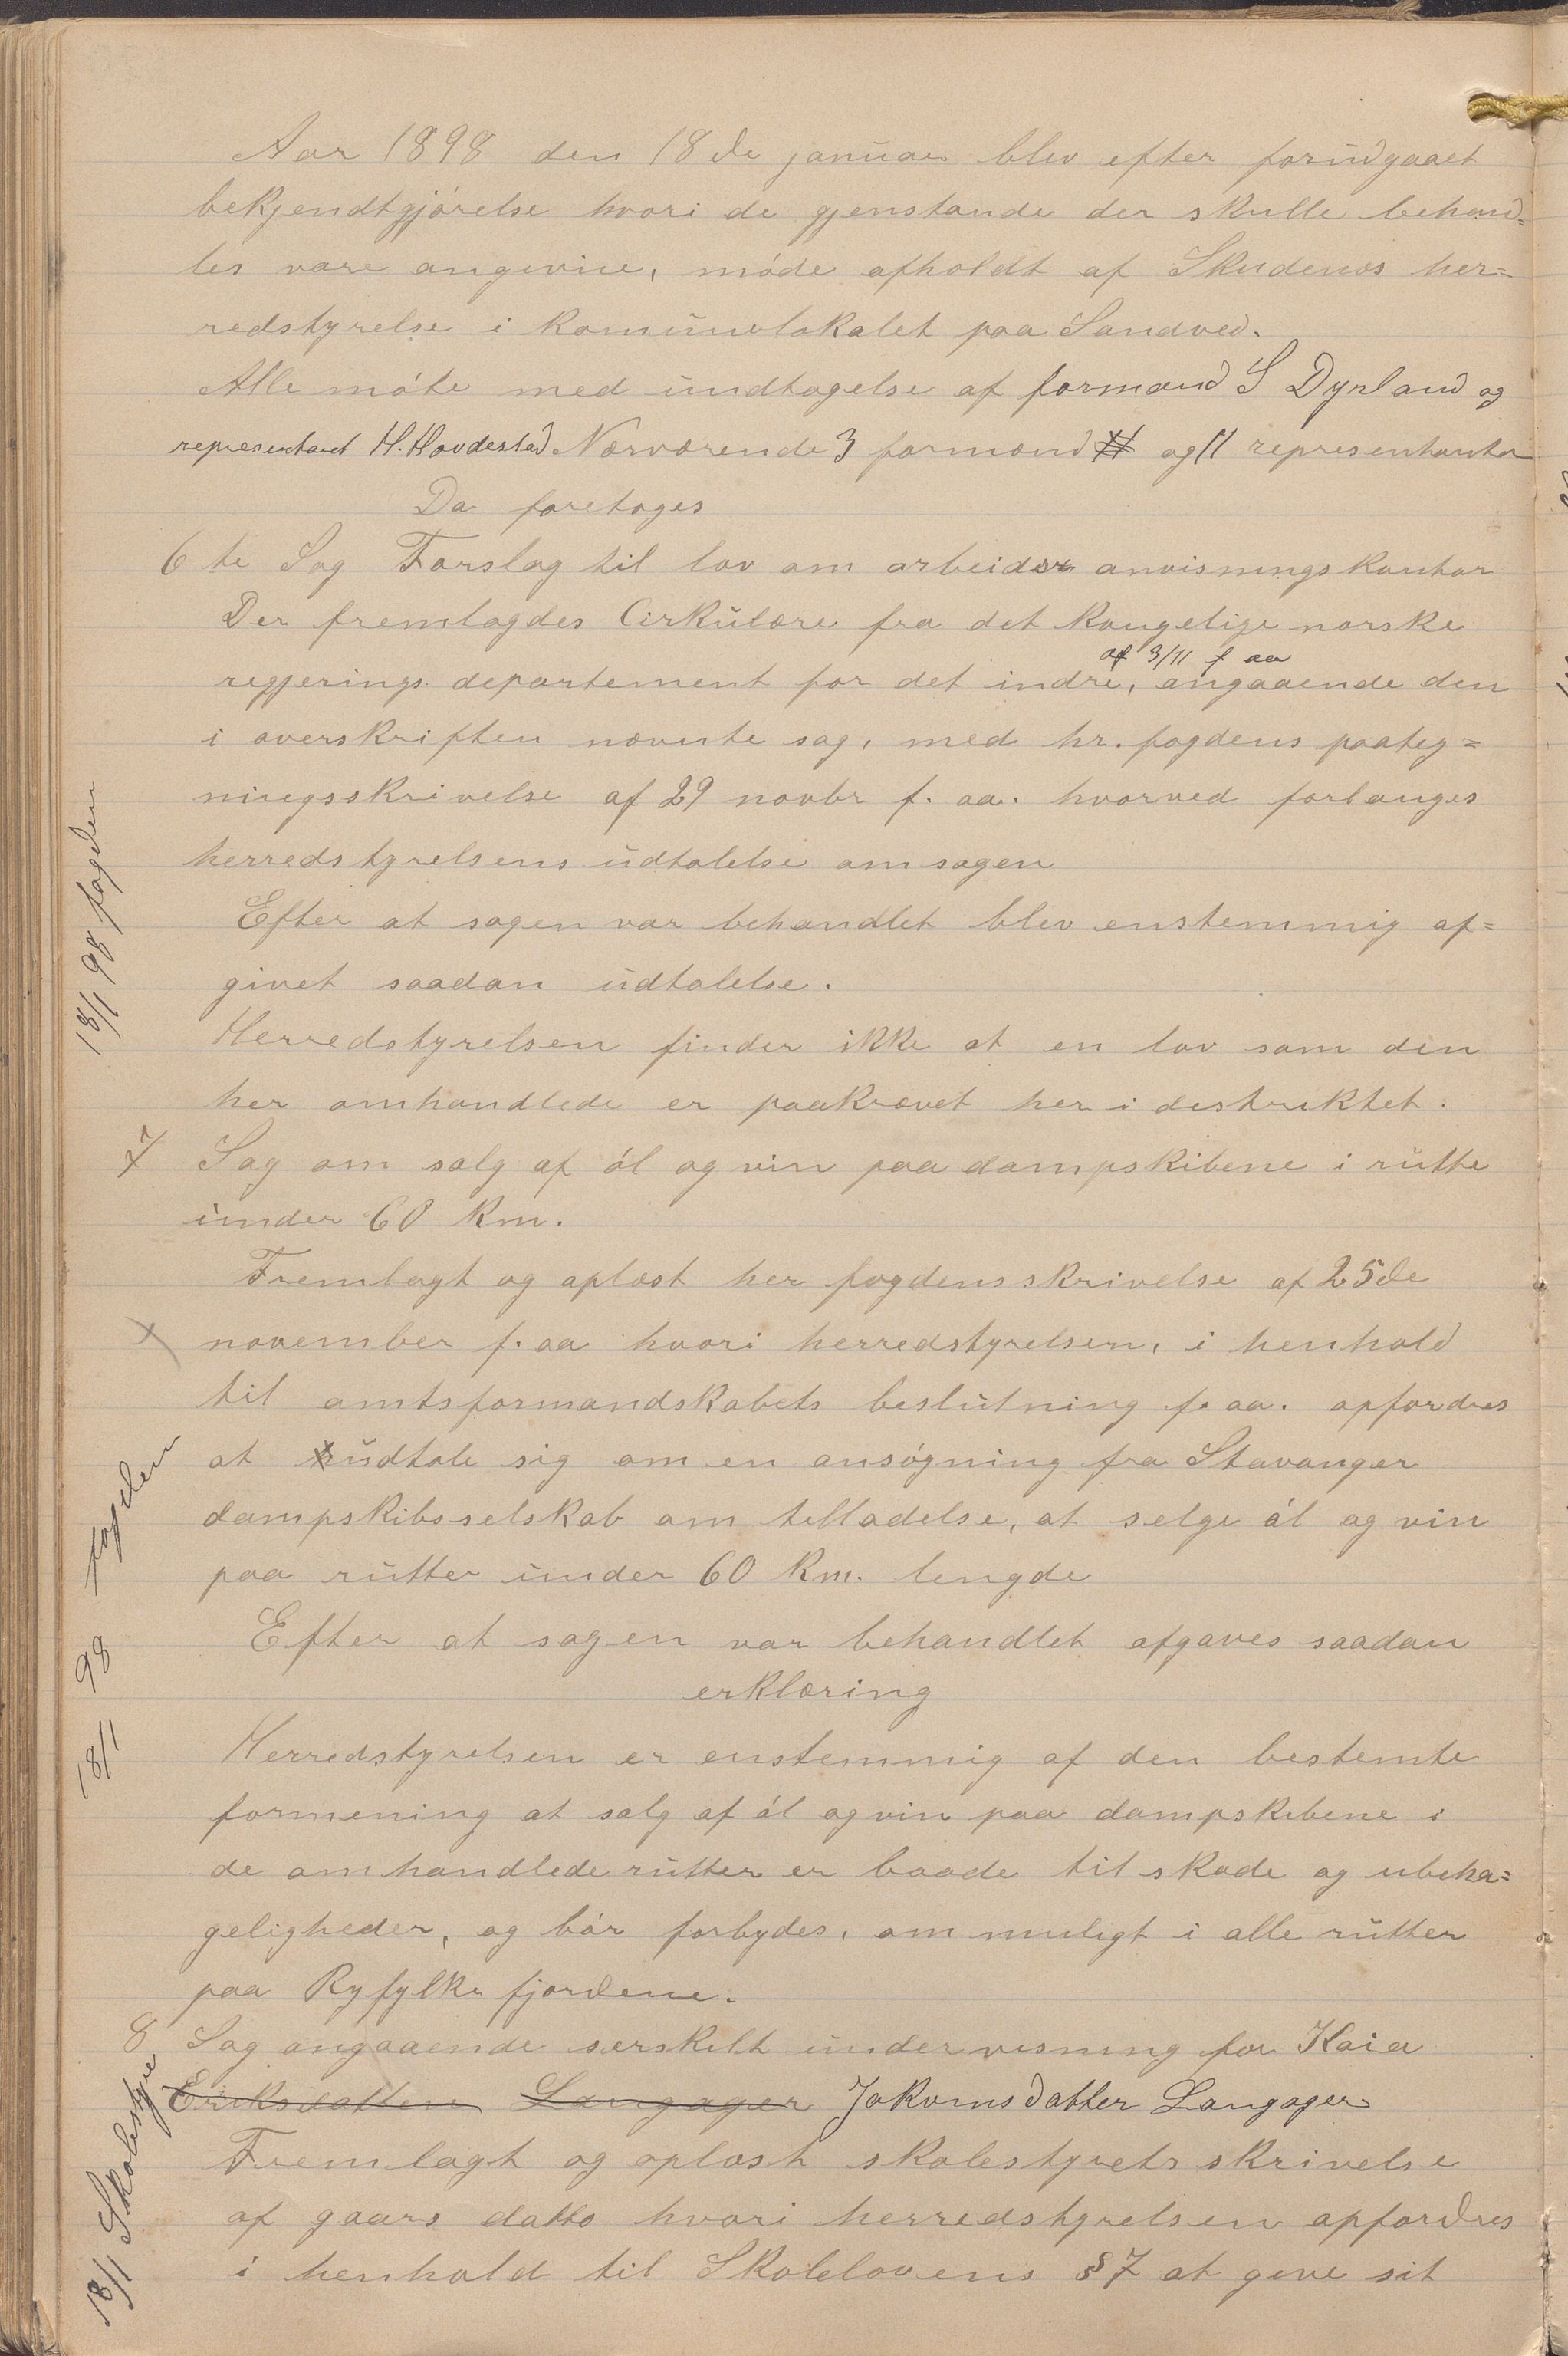 Aar 1898 den 18de januar blev efter forudgaaet
bekjendtgjörelse hvori de gjenstande der skulle behand=
les vare angivne, möde afholdt af Skudenes her=
redstyrelse i Komunelokalet paa Sandved.
Alle möte med undtagelse af formand S Dyrland og
representant H. Hovdestad Nærværende 3 formænd og 11 representanter
Da foretoges
6te Sag Forslag til lov om arbeider anvisningskontor
Der fremlagdes Cirkulære fra det kongelige norske
af 3/11 f aa
regjerings departement for det indre, angaaende den
i overskriften nævnte sag, med hr. fogdens paateg=
ningsskrivelse af 29 novbr f. aa. hvorved forlanges
herredstyrelsens udtalelse om sagen
18/1 98 fogden
Efter at sagen var behandlet blev enstemmig af=
givet saadan udtalelse.
Herredstyrelsen finder ikke at en lov som den
her omhandlede er paakrævet her i destriktet.
7 Sag om salg af öl og vin paa dampskibene i rutte
under 60 Km.
Fremlagt og oplæst her fogdens skrivelse af 25de
november f. aa hvori herredstyrelsen, i henhold
til amtsformandskabets beslutning f. aa. opfordres
at udtale sig om en ansögning fra Stavanger
dampskibsselskab om telladelse, at selge öl og vin
paa rutter under 60 Km. lengde
18/1 98 fogden
Efter at sagen var behandlet afgaves saadan
erklæring
Herredstyrelsen er enstemmig af den bestemte
formening at salg af öl og vin paa dampskibene i
de omhandlede rutter er baade til skade og ubeha=
geligheder, og bör forbydes, om muligt i alle rutter
paa Ryfylke fjordene.
8 Sag angaaende serskilt undervisning for Kaia
Eriksdatter Langager Jakomsdatter Langager
Fremlagt og oplæst skolestyrets skrivelse
af gaars datto hvori herredstyrelsen opfordres
i henhold til Skolelovens § 7 at give sit
18/1 Skolestyre